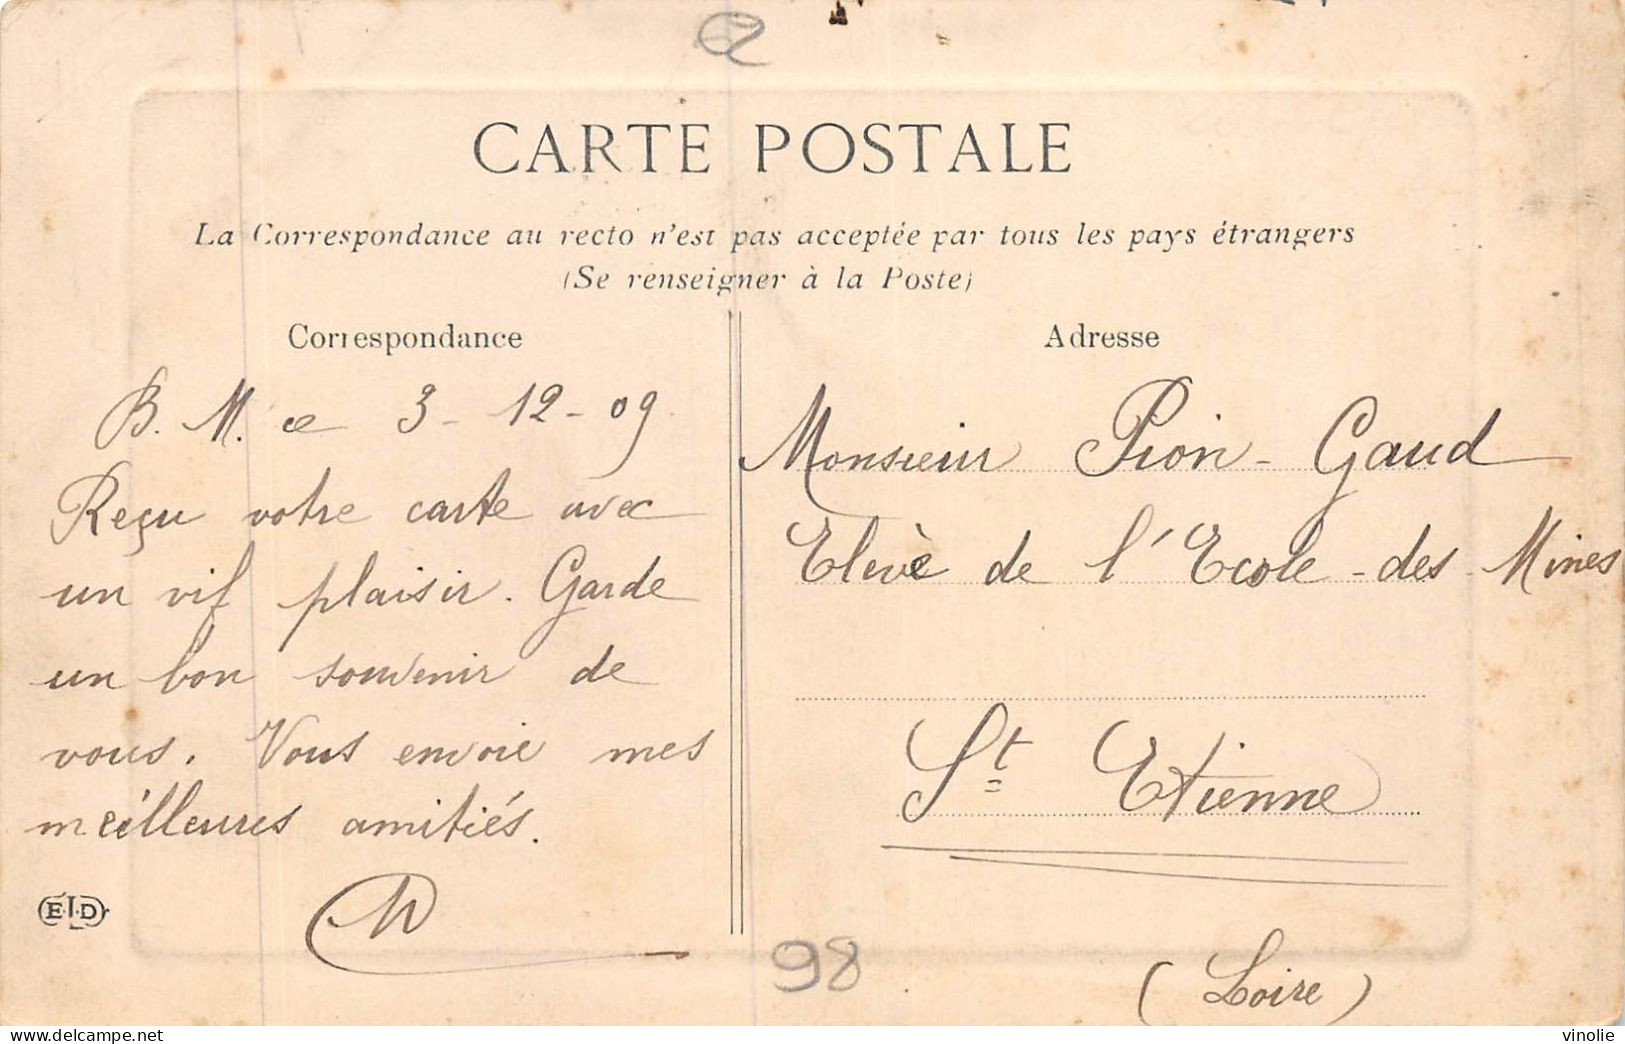 CARTE POSTALE
La Correspondance au recto n'est pas acceptée par tous les pays étrangers
(Se renseigner à la Poste)
Correspondance
B. M. ce 3-12-09
Reçu votre carte avec
un vif plaisir. Garde
un bon souvenir de
vous. Vous envoie mes
meilleures amitiés.
E.L.D.
Adresse
Monsieur Pion-Gaud
Elève de l'Ecole-des-Mines
St Etienne
(Loire)
98
vinolie